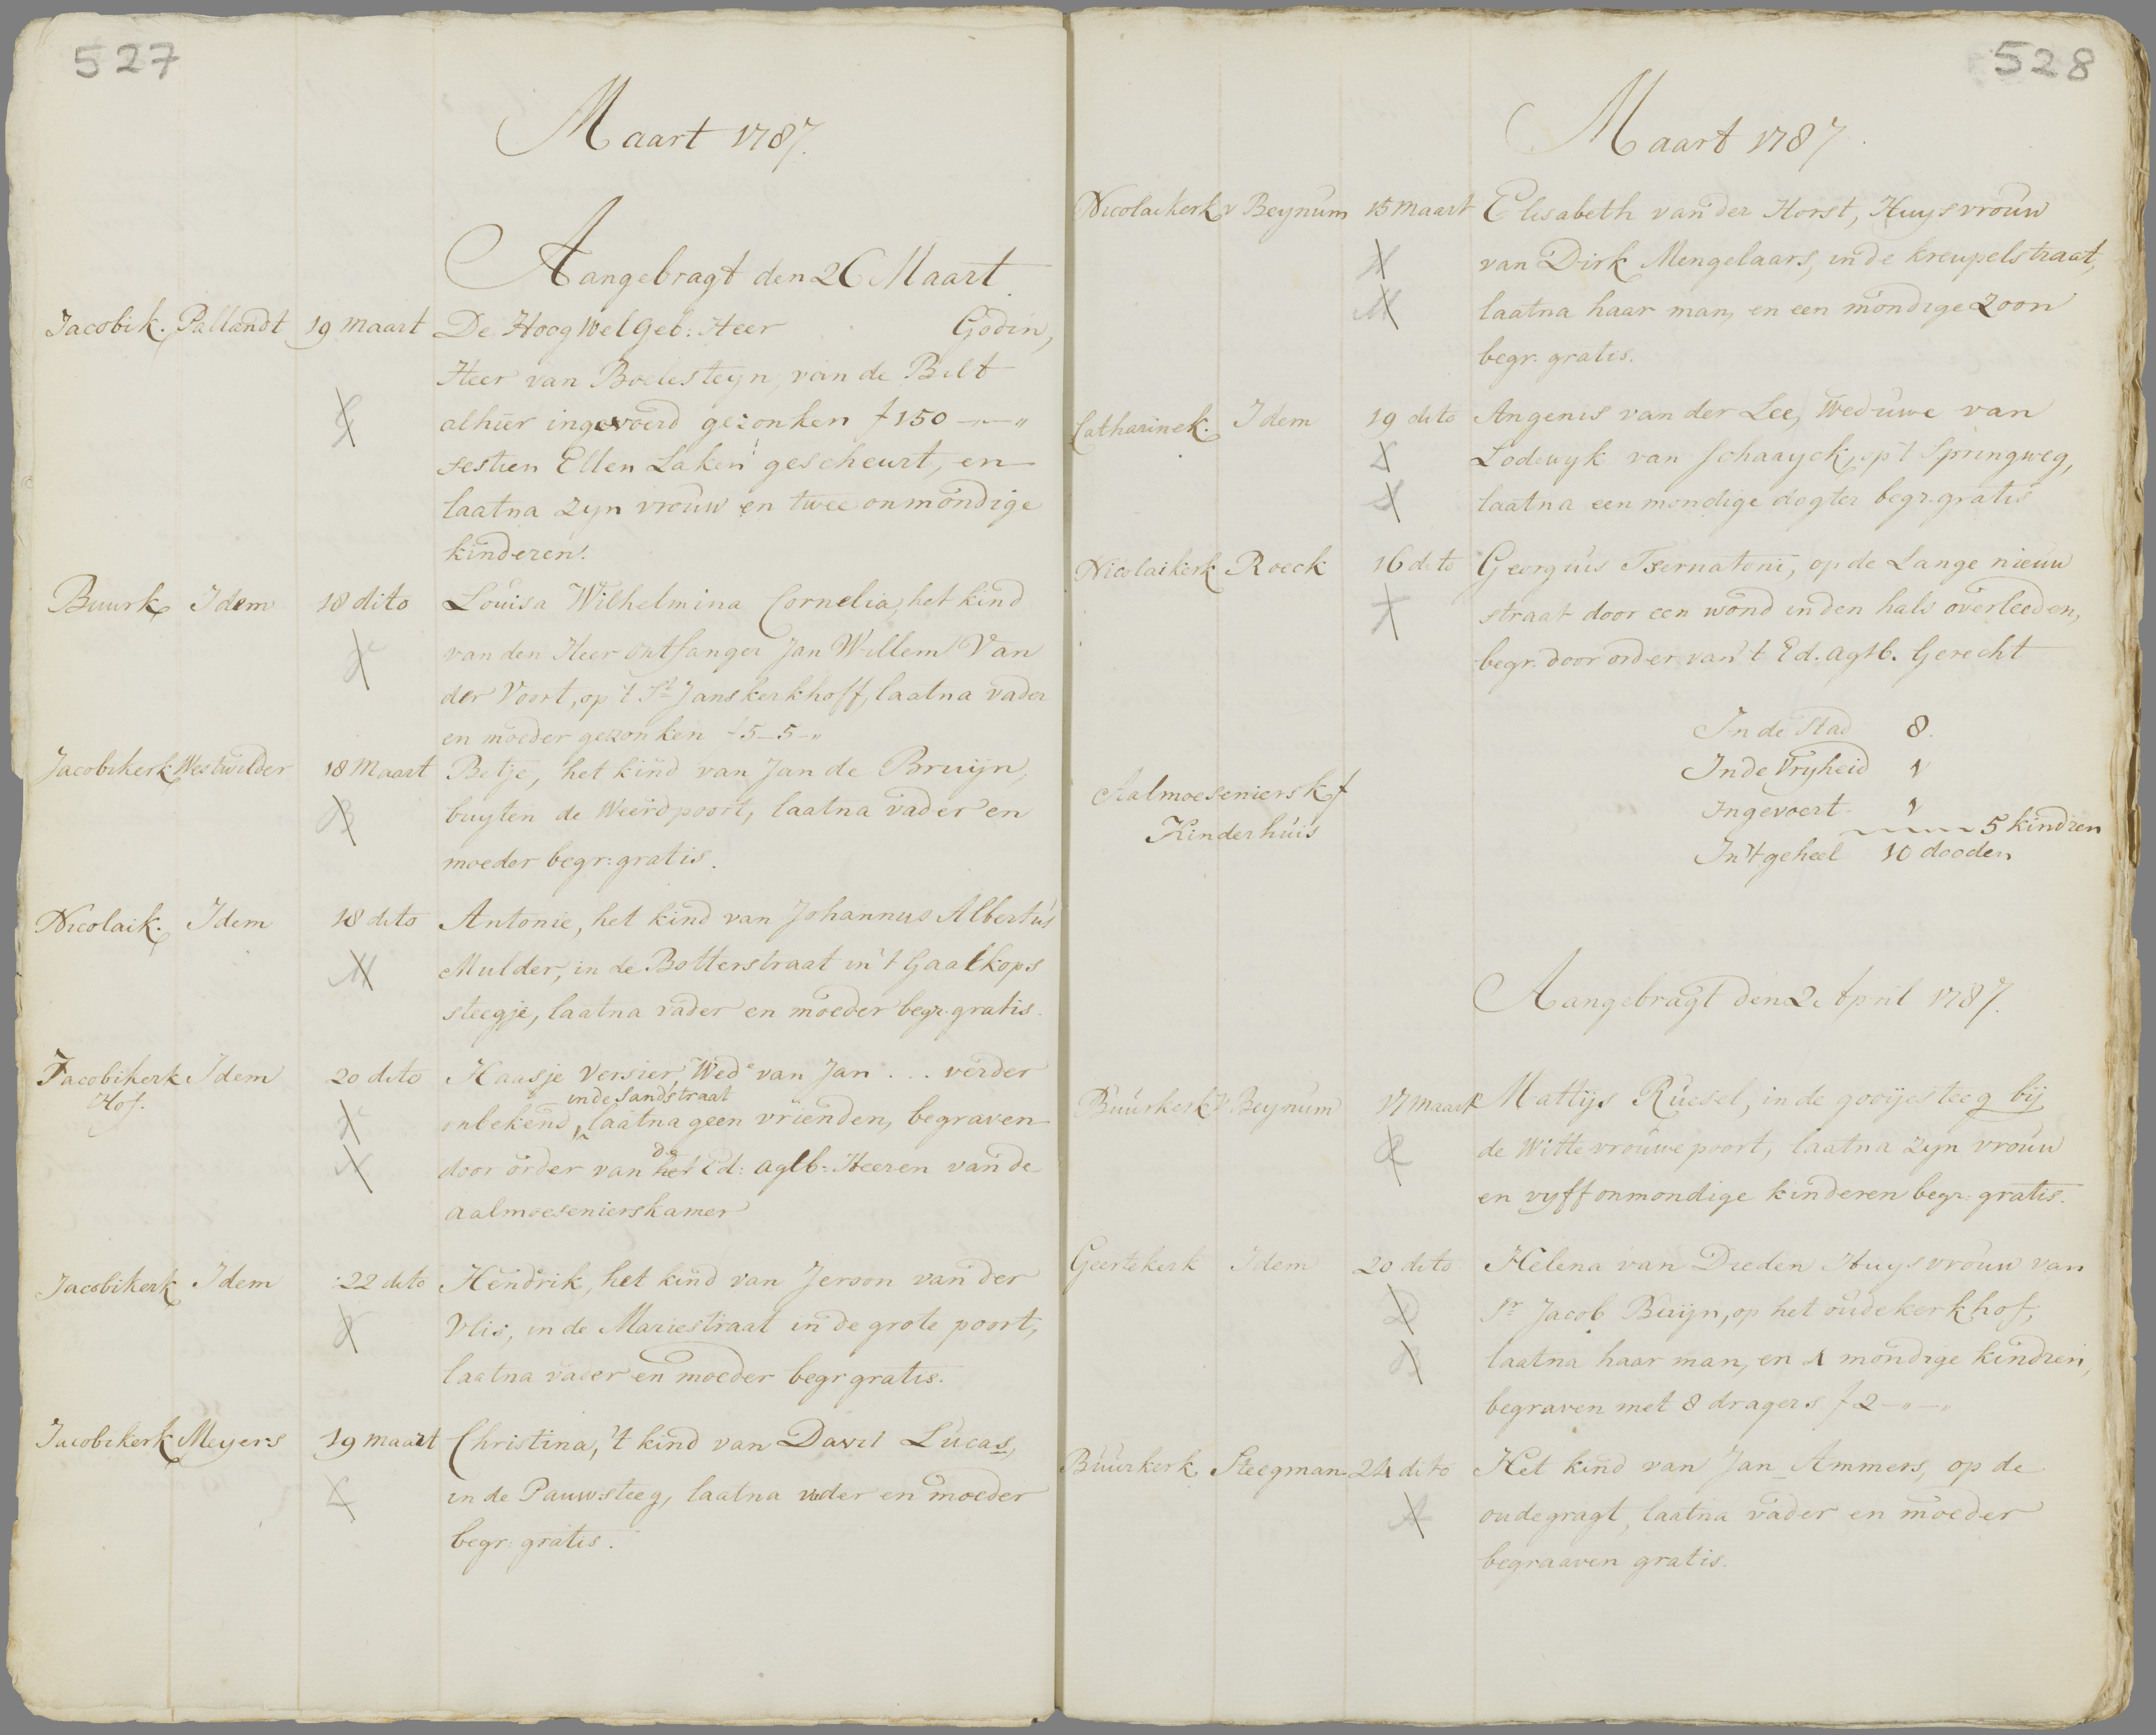 527
Maart 1787.
Aangebragt den 26 Maart
Jacobik. Pallandt 19 Maart De HoogWelGeb: Heer Godin,
Heer van Boelesteyn, van de Bilt
alhier ingevoerd gezonken f 150 -"-"
sestien Ellen Laken gescheurt, en
laatna zyn vrouw en twee onmondige
kinderen.
Buurk Idem 18 dito Louisa Wilhelmina Cornelia, het kind
van den Heer ontfanger Jan Willem Van
der Voort, op 't St Janskerkhoff, laatna vader
en moeder gezonken f 5-5-"
Jacobikerk Westwilder 18 Maart Betje, het kind van Jan de Bruijn,
buyten de Weerdpoort, laatna vader en
moeder begr: gratis.
Nicolaik. Idem 18 dito Antonie, het kind van Johannus Albertus
Mulder, in de Botterstraat in 't Gaalkops
steegje, laatna vader en moeder begr. gratis.
Jacobikerk Idem 20 dito Haasje Versier, Wede van Jan . . . verder
Hof. in de Sandstraat
onbekend, laatna geen vrienden, begraven
door order van het de Ed: agtb: Heeren van de
aalmoesenierskamer
Jacobikerk Idem 22 dito Hendrik, het kind van Jeroon van der
Vlis, in de Mariestraat in de grote poort,
laatna vader en moeder begr gratis.
Jacobikerk Meyers 19 maart Christina, 't kind van Davit Lucas,
in de Pauwsteeg, laatna vader en moeder
begr: gratis.
528
Maart 1787.
Nicolaikerk v Beynum 15 Maart Elisabeth van der Horst, Huysvrouw
H van Dirk Mengelaars, in de kreupelstraat,
M laatna haar man, en een mondige zoon
begr. gratis.
Catharinek. Idem 19 dito Angenis van der Lee, Weduwe van
L Lodewyk van Schaayck, op 't Springweg,
S laatna een mondige dogter begr. gratis
Nicolaikerk Roeck 16 dito Georguis Tsernatoni, op de Lange nieuw
T straat door een wond in den hals overleeden,
begr. door order van 't Ed. agtb. Gerecht
In de Stad 8.
In de Vryheid 1
Aalmoeseniersk f Ingevoert 1
Kinderhuis 5 kindren
In 't geheel 10 dooden
Aangebragt den 2 April 1787.
Buurkerk v Beynum 17 maart Mattijs Ruesel, in de gooijesteeg bij
R de Wittevrouwepoort, laatna zyn vrouw
en vyff onmondige kinderen begr: gratis.
Geertekerk Idem 20 dito Helena van Dieden Huysvrouw van
D Sr Jacob Buijn, op het oudekerkhof,
B laatna haar man, en 4 mondige kindren,
begraven met 8 dragers f 2-"-"
Buurkerk Steegman 24 dito Het kind van Jan Ammers, op de
A oudegragt, laatna vader en moeder
begraaven gratis.